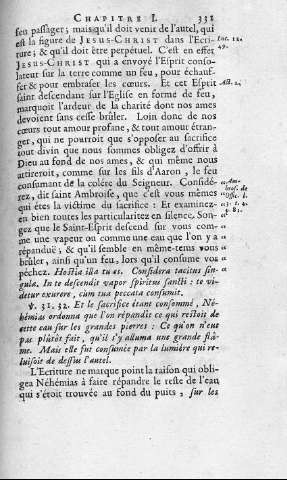 CHAPITRE I. 331
feu passager ; mais qu'il doit venir de l'autel, qui
est la figure de JESUS-CHRIST dans l'Ecri-
ture ; & qu'il doit être perpétuel. C'est en effet
JESUS-CHRIST qui a envoyé l'Esprit conso-
lateur sur la terre comme un feu, pour échauf-
fer & pour embraser les cœurs. Et cet Esprit
saint descendant sur l'Eglise en forme de feu,
marquoit l'ardeur de la charité dont nos ames
devoient sans cesse brûler. Loin donc de nos
cœurs tout amour profane, & tout amour étran-
ger, qui ne pourroit que s'opposer au sacrifice
tout divin que nous sommes obligez d'offrir à
Dieu au fond de nos ames, & qui même nous
attireroit, comme sur les fils d'Aaron, le feu
consumant de la colére du Seigneur. Considé-
rez, dit saint Ambroise, que c'est vous mêmes
qui êtes la victime du sacrifice : Et examinez-
en bien toutes les particularitez en silence. Son-
gez que le Saint-Esprit descend sur vous com-
me une vapeur ou comme une eau que l'on y a
répanduë ; & qu'il semble en même-tems vous
brûler, ainsi qu'un feu, lors qu'il consume vos
péchez. Hostia illa tu es. Considera tacitus sin-
gula. In te descendit vapor spiritus sancti : te vi-
detur exurere, cùm tua peccata consumit.
℣. 31. 32. Et le sacrifice étant consommé, Né-
hémias ordonna que l'on répandît ce qui restoit de
cette eau sur les grandes pierres : Ce qu'on n'eut
pas plûtôt fait, qu'il s'y alluma une grande flâ-
me. Mais elle fut consumée par la lumière qui re-
luisoit de dessus l'autel.
L'Ecriture ne marque point la raison qui obli-
gea Néhémias à faire répandre le reste de l'eau
qui s'étoit trouvée au fond du puits ; sur les
Luc. 12.
49.
Act. 2.
Am-
bros. de
Offic. l.
3. c.